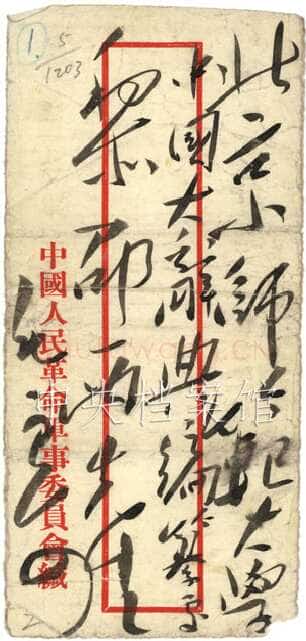 1.
5/1203
北京師範大學
中國大辭典編纂處
黎邵西先生
中國人民革命軍事委員會緘
中央档案馆
2